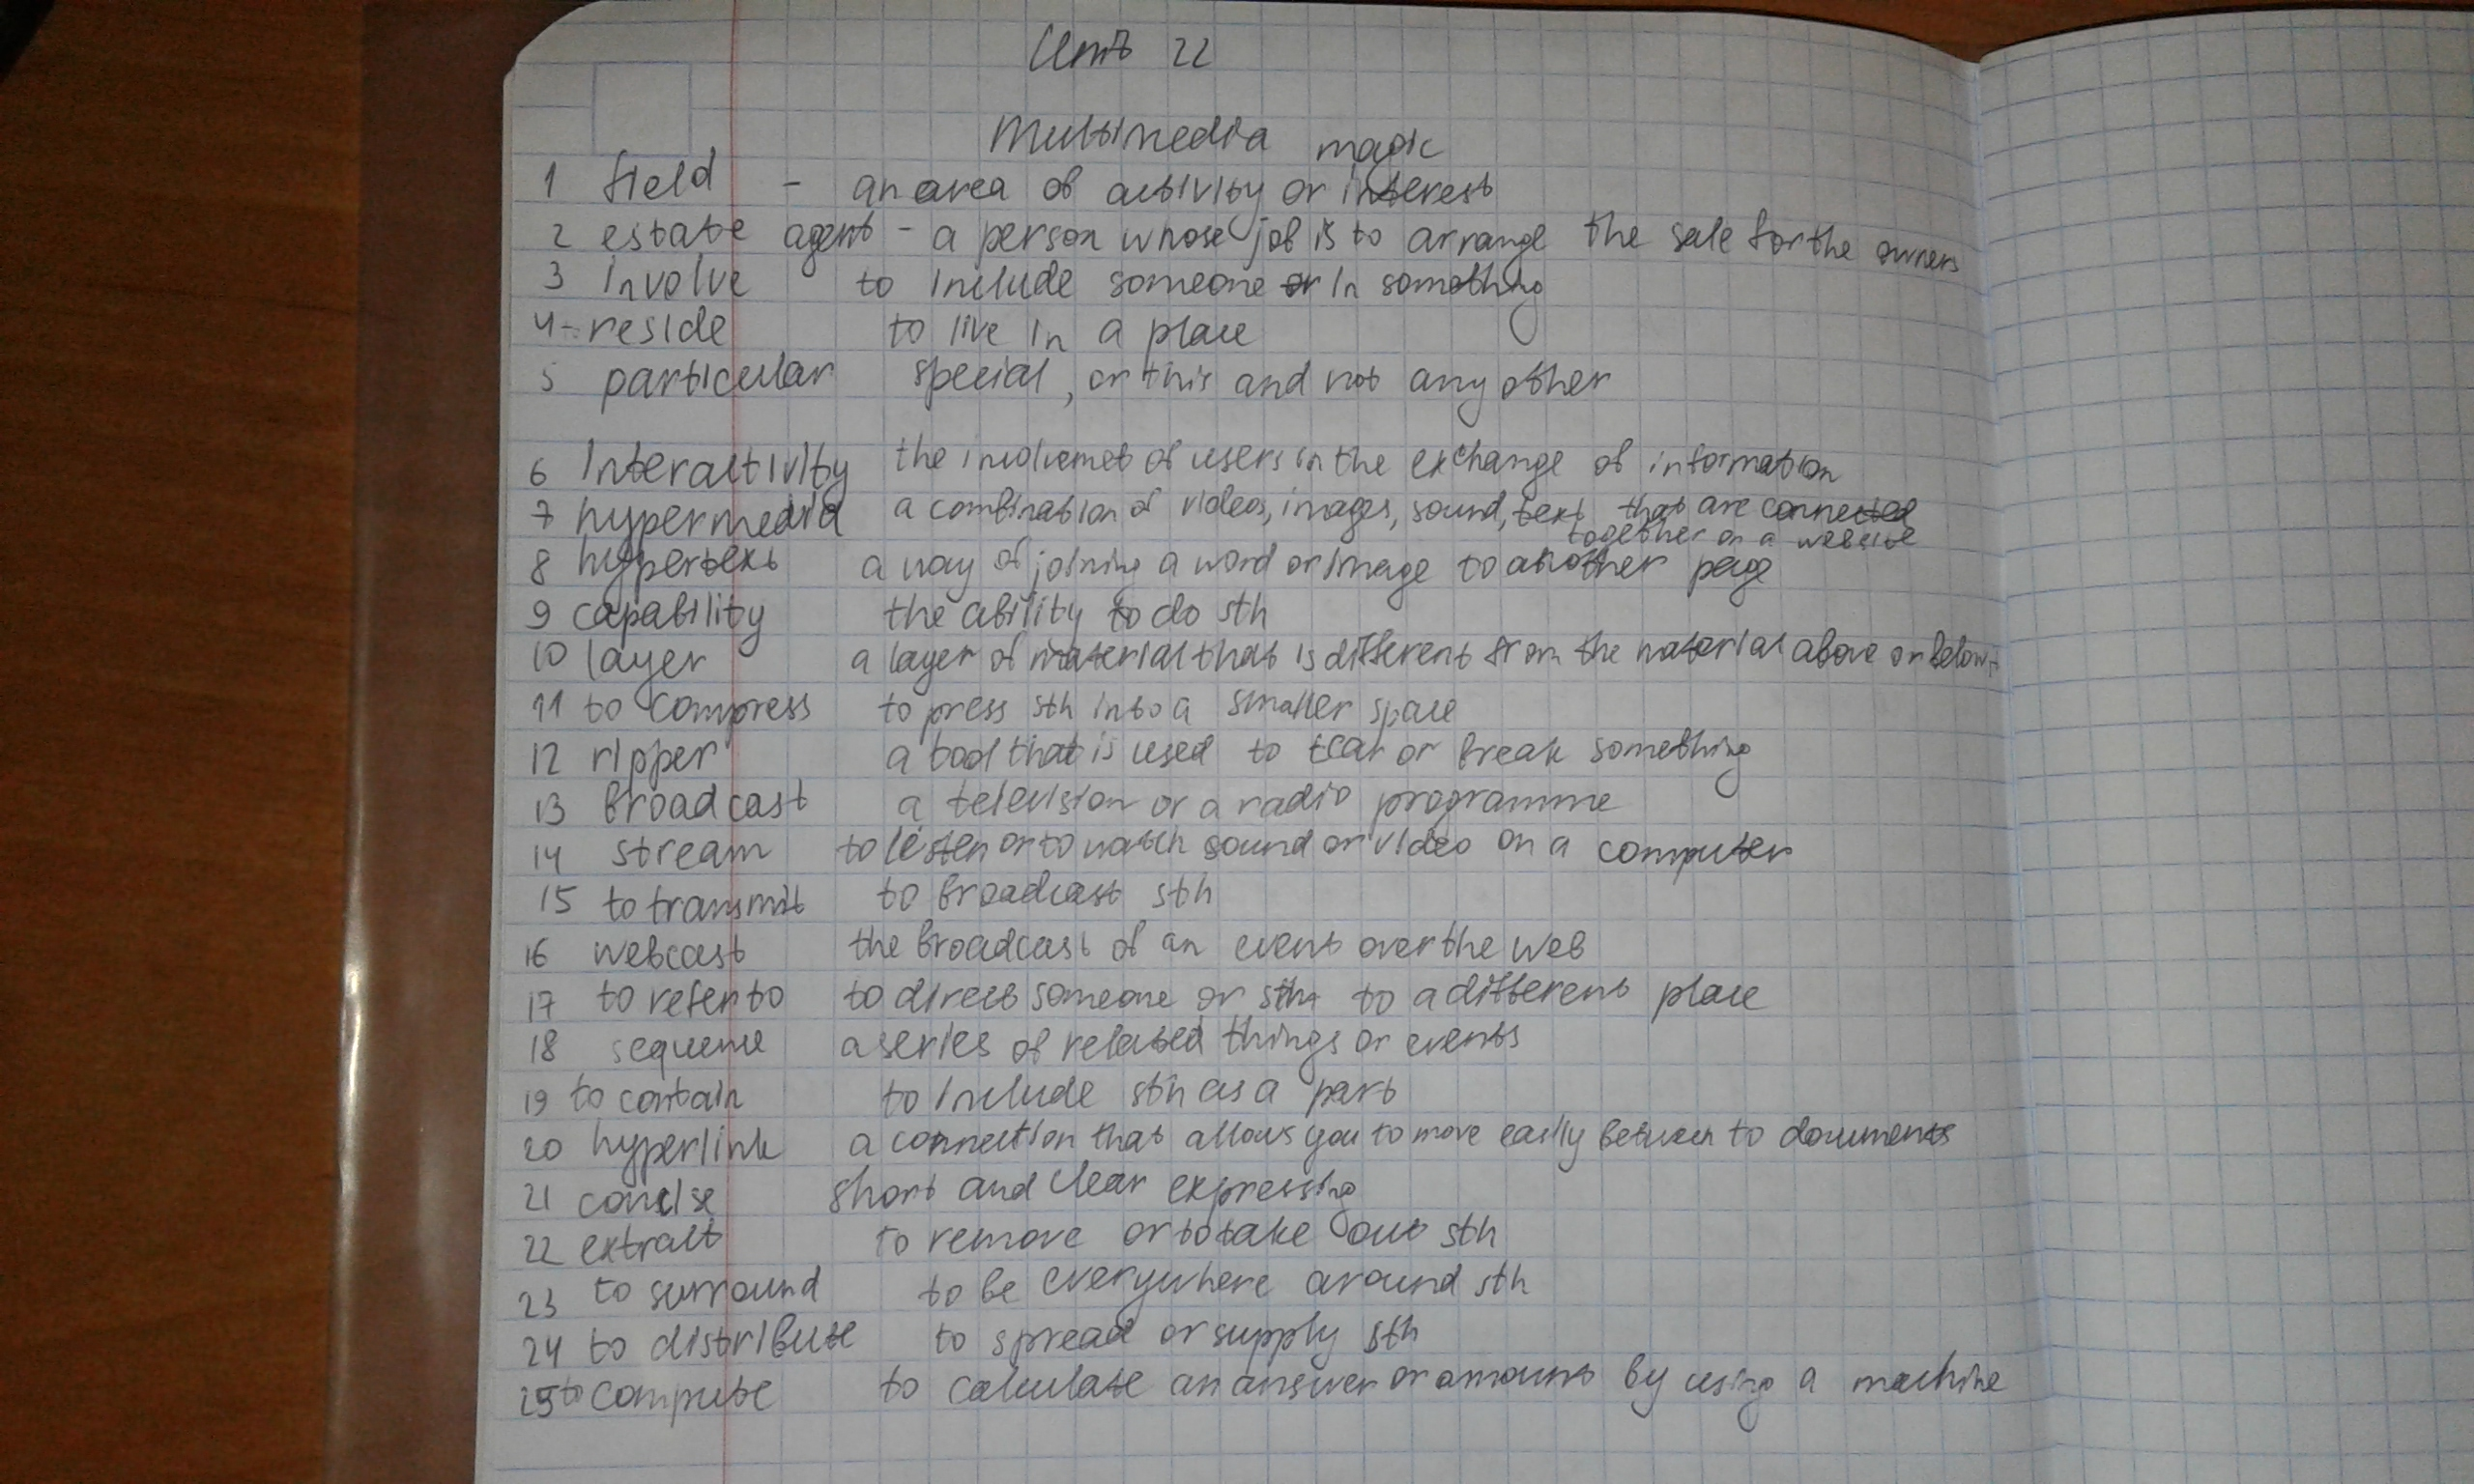 Unit 22
Multimedia magic
1 field - an area of activity or interest
2 estate agent - a person whose job is to arrange the sale for the owners
3 involve to include someone or in something
4-reside to live in a place
5 particular special, or this and not any other
6 interactivity the involvemet of users in the exchange of information
7 hypermedia a combination of videos, images, sound, text that are connected
together on a website
8 hypertext a way of joining a word or image to another page
9 capability the ability to do sth
10 layer a layer of material that is different from the material above or below
11 to compress to press sth into a smaller space
12 ripper a tool that is used to tear or break something
13 broadcast a television or a radio programme
14 stream to listen or to watch sound or video on a computer
15 to transmit to broadcast sth
16 webcast the broadcast of an event over the web
17 to refer to to direct someone or sth to a different place
18 sequence a series of related things or events
19 to contain to include sth as a part
20 hyperlink a connection that allows you to move easily between to documents
21 concise short and clear expressing
22 extract to remove or to take out sth
23 to surround to be everywhere around sth
24 to distribute to spread or supply sth
25 to compute to calculate an answer or amount by using a machine